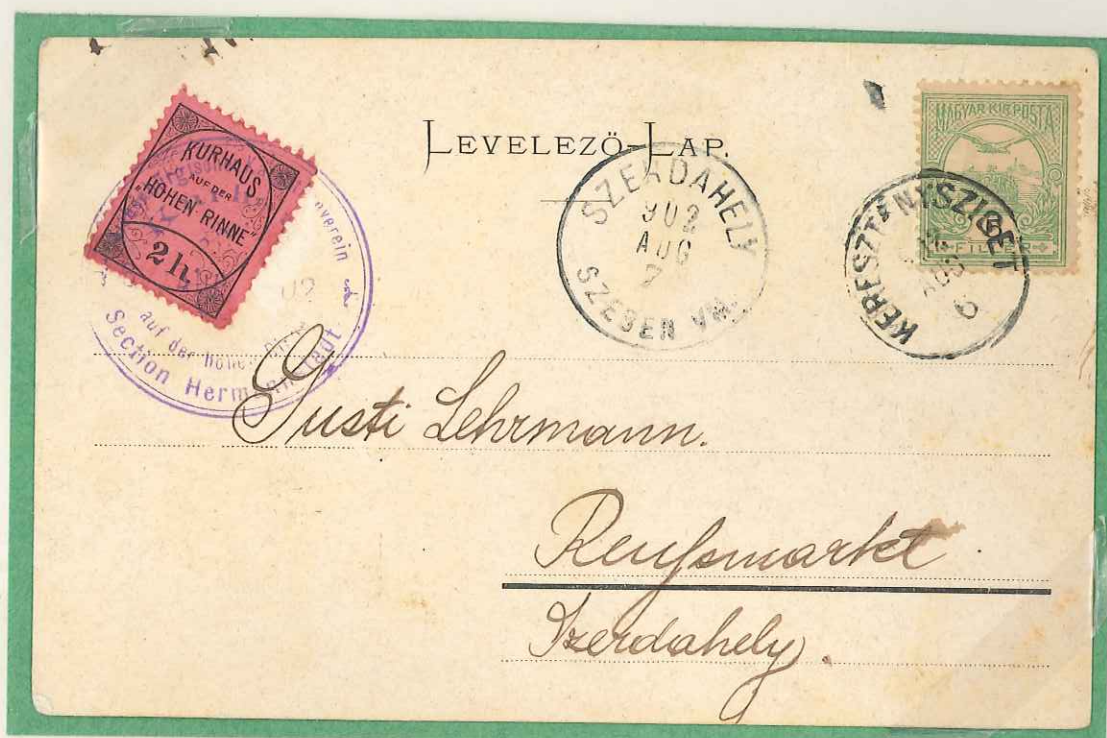 LEVELEZŐ-LAP.
KURHAUS
AUF DER
"HOHEN RINNE"
2 h.
auf der hohen
Section Hermannstadt
SZERDAHELY
902
AUG
7
SZEBEN VM.
MAGYAR KIR. POSTA
FILLÉR
KERESZTÉNYSZIGET
AUG
6
Gusti Lehrmann.
Reußmarkt.
Szerdahely.